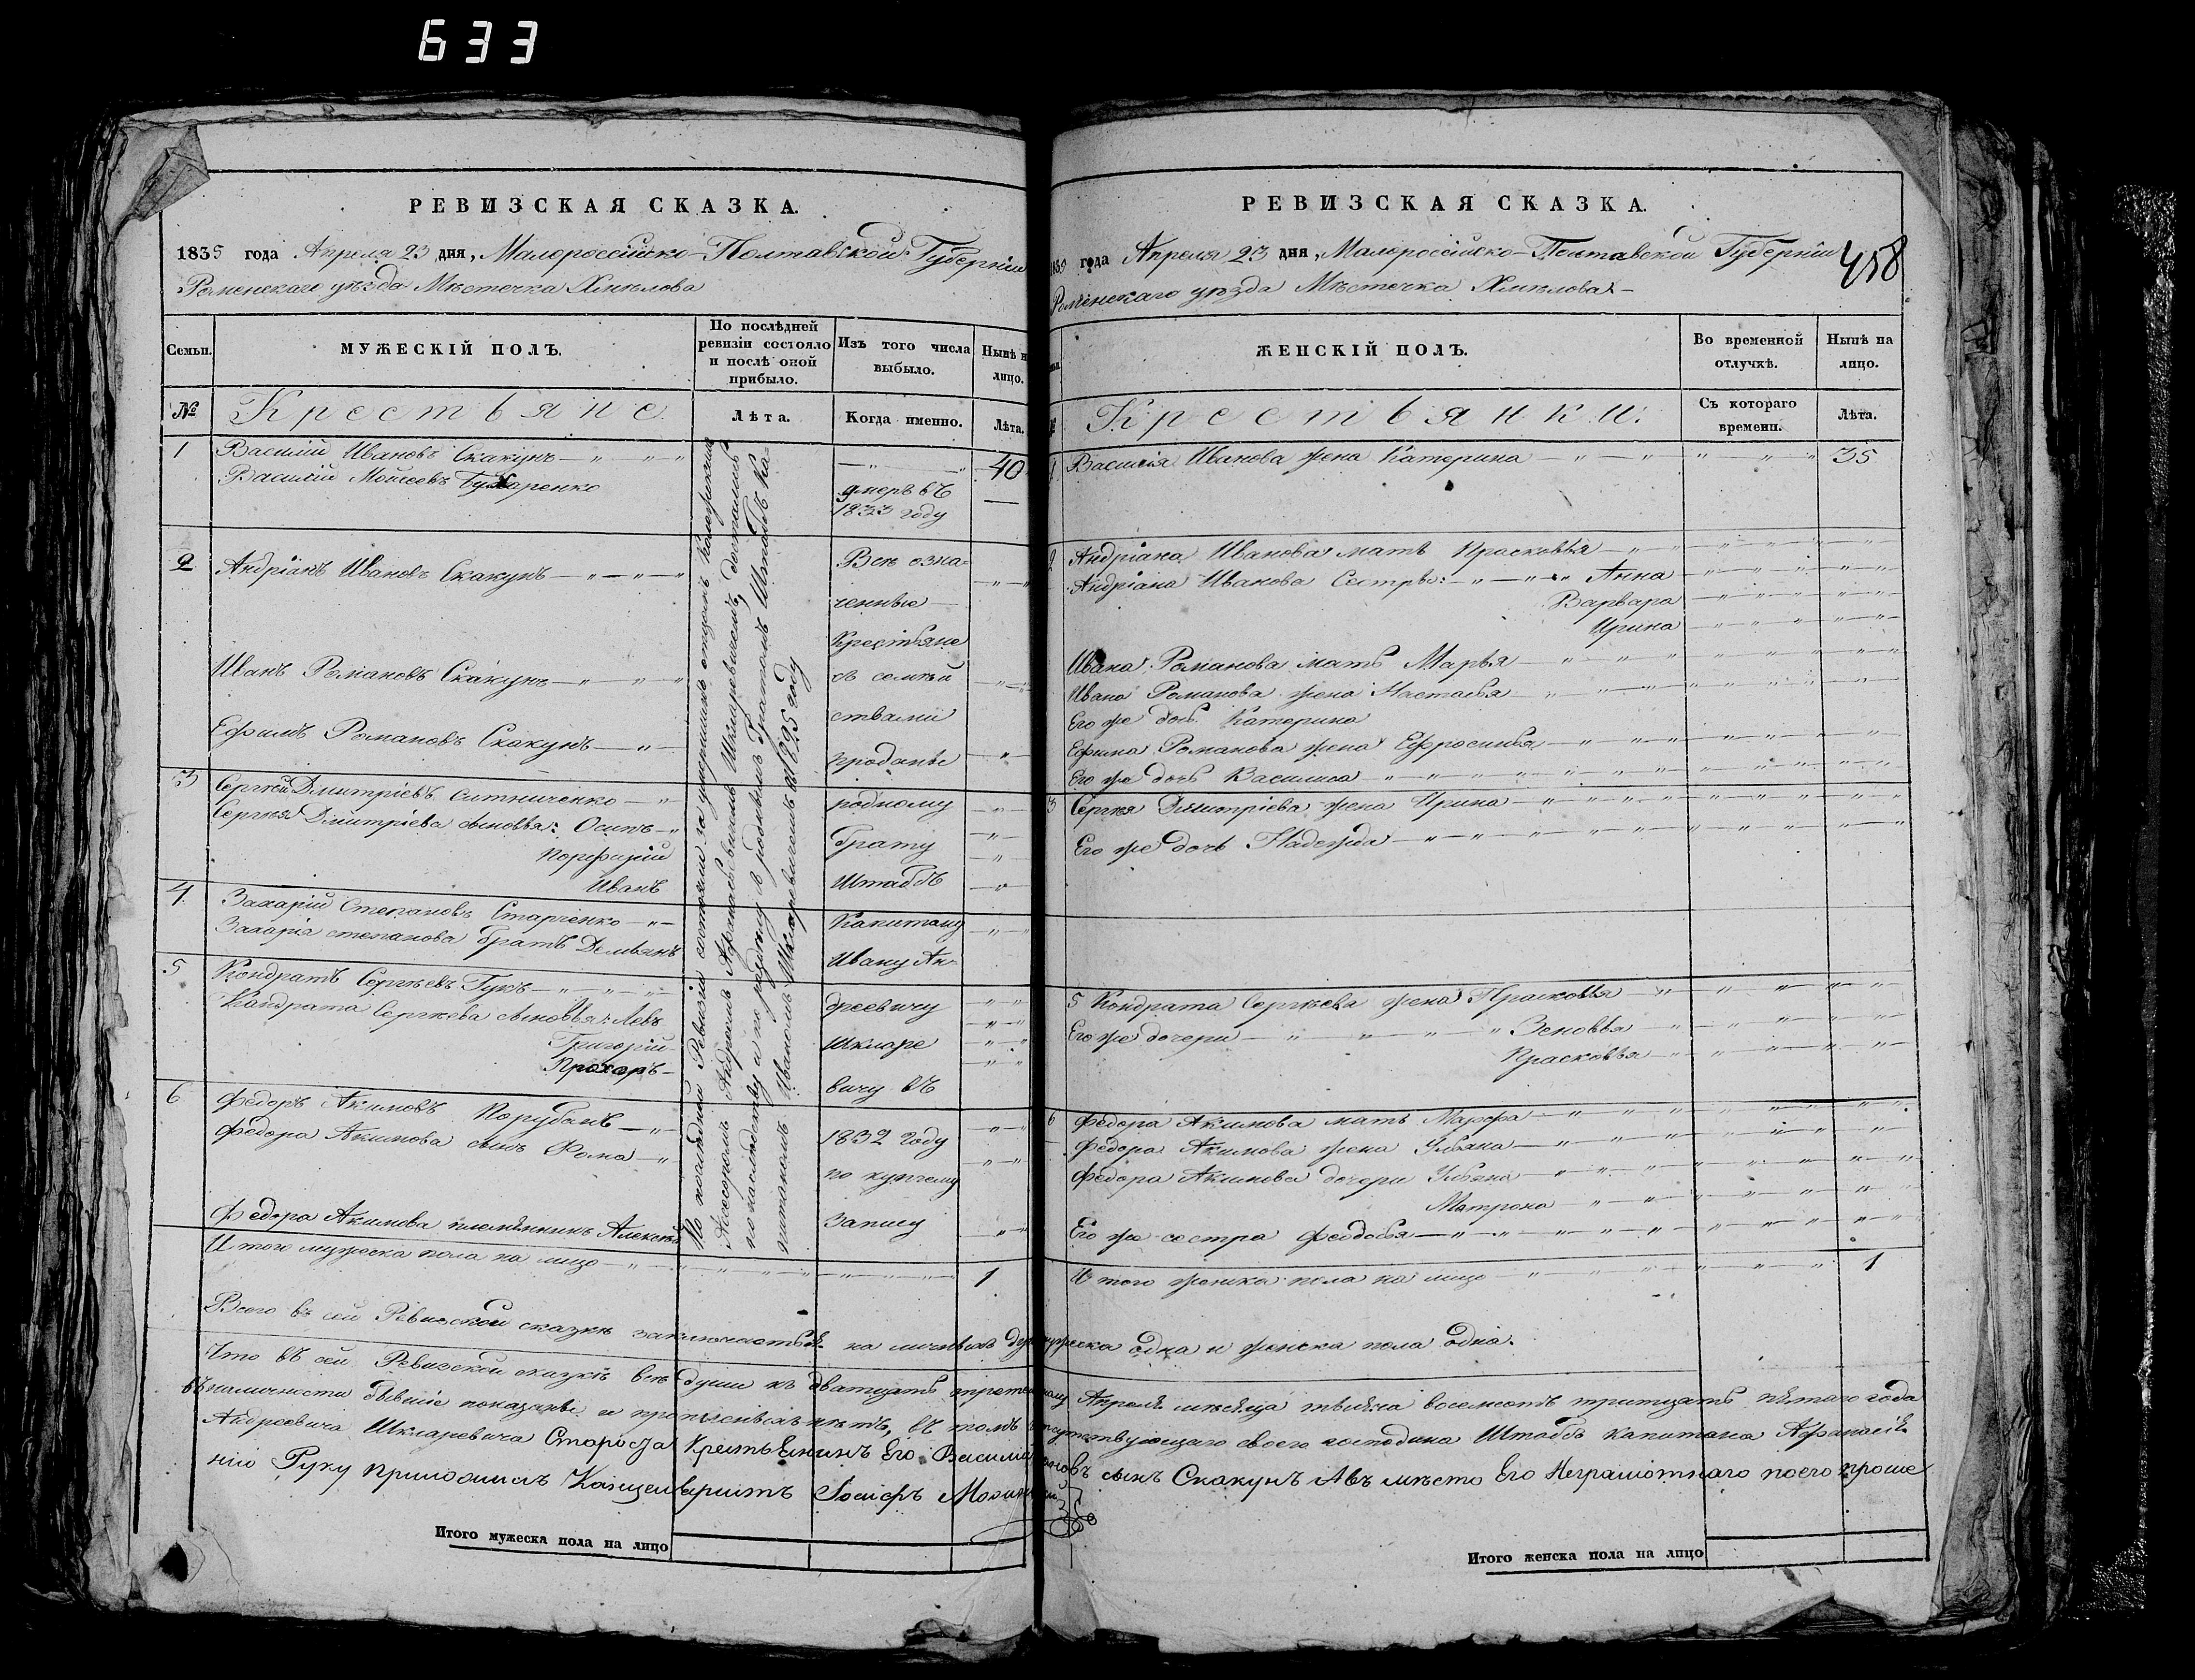 633
РЕВИЗСКАЯ СКАЗКА.
1835 года Апреля 23 дня, Малороссійско-Полтавской Губерніи
Роменскаго уѣзда Мѣстечка Хмѣлова
Семьи.
МУЖЕСКІЙ ПОЛЪ.
По послѣдней
ревизіи состояло
и послѣ оной
прибыло.
Изъ того числа
выбыло.
Нынѣ н
лицо.
№
Крестьяне
Лѣта.
Когда именно.
Лѣта.
1 Василій Ивановъ Скакунъ 40
Василій Моисеевъ умеръ въ
1833 году
2 Андріанъ Ивановъ Скакунъ
Иванъ Романовъ Скакунъ
Ефимъ Романовъ Скакунъ
3 Сергѣй Дмитріевъ Ситниченко
Сергѣя Дмитріева сыновья: Осипъ
Порфирій
Иванъ
4 Захарій Степановъ Старченко
Захарія степанова братъ Демьянъ
5 Кондратъ Сергѣевъ Гукъ
Кандрата Сергѣева сыновья: Левъ
Григорій
Прохоръ
6 Федоръ Акимовъ Порубай
Федора Акимова сынъ Фома
Федора Акимова племянникъ Алексѣй
По послѣдней Ревизіи состояли за умершимъ отцомъ Колежскимъ
Асесоромъ Андреемъ Афанасьевичемъ Шкляревичемъ, достались
по наслѣдству и по раздѣлу съ роднымъ братомъ Штабъ Ка-
питаномъ Иваномъ Шкляревичемъ въ 1825 году
Всѣ озна-
ченные
Крестьяне
съ семѣй
ствами
проданы
родному
брату
Штабъ
Капитану
Ивану Ан-
дреевичу
Шкляре
вичу въ
1832 году
по купчему
запису
Итого мужеска пола на лицо 1
РЕВИЗСКАЯ СКАЗКА.
1835 года Апреля 23 дня, Малороссійско-Полтавской Губерніи
Роменскаго уѣзда Мѣстечка Хмѣлова
458
ЖЕНСКІЙ ПОЛЪ.
Во временной
отлучкѣ.
Нынѣ на
лицо.
Крестьянки.
Съ котораго
времени.
Лѣта.
1 Василія Иванова жена Катерина 35
2 Андріана Иванова мать Прасковья
Андріана Иванова Сестры: Анна
Варвара
Ирина
Ивана Романова мать Марья
Ивана Романова жена Настасья
Его же доч. Катерина
Ефима Романова жена Ефросинья
Его же дочь Василиса
3 Сергѣя Дмитріева жена Ирина
Его же дочь Надежда
5 Кондрата Сергѣева жена Прасковья
Его же дочери Зеновья
Прасковья
6 Федора Акимова мать Марфа
Федора Акимова жена Ульяна
Федора Акимова дочери Ульяна
Матрона
Его же сестра Феодосья
Итого женска пола на лицо 1
Всего въ сей Ревизской сказкѣ заключаеться на личныхъ душъ мужеска одна и женска пола одна.
Что въ сей Ревизской сказкѣ всѣ души къ дватцать третьему Апреля мѣсяца тысяча восемсотъ тритцать пятаго года
въ наличности бывшіе показаны и прописныхъ нѣтъ, въ томъ отсутствующаго своего господина Штабъ капитана Афанасія
Андреевича Шкляревича Староста Крестьянинъ Его Василій Ивановъ сынъ Скакунъ Авъ мѣсто Его Неграмотнаго поего проше
нію Руку приложилъ Канцеляристъ Іосифъ
Итого мужеска пола на лицо
Итого женска пола на лицо